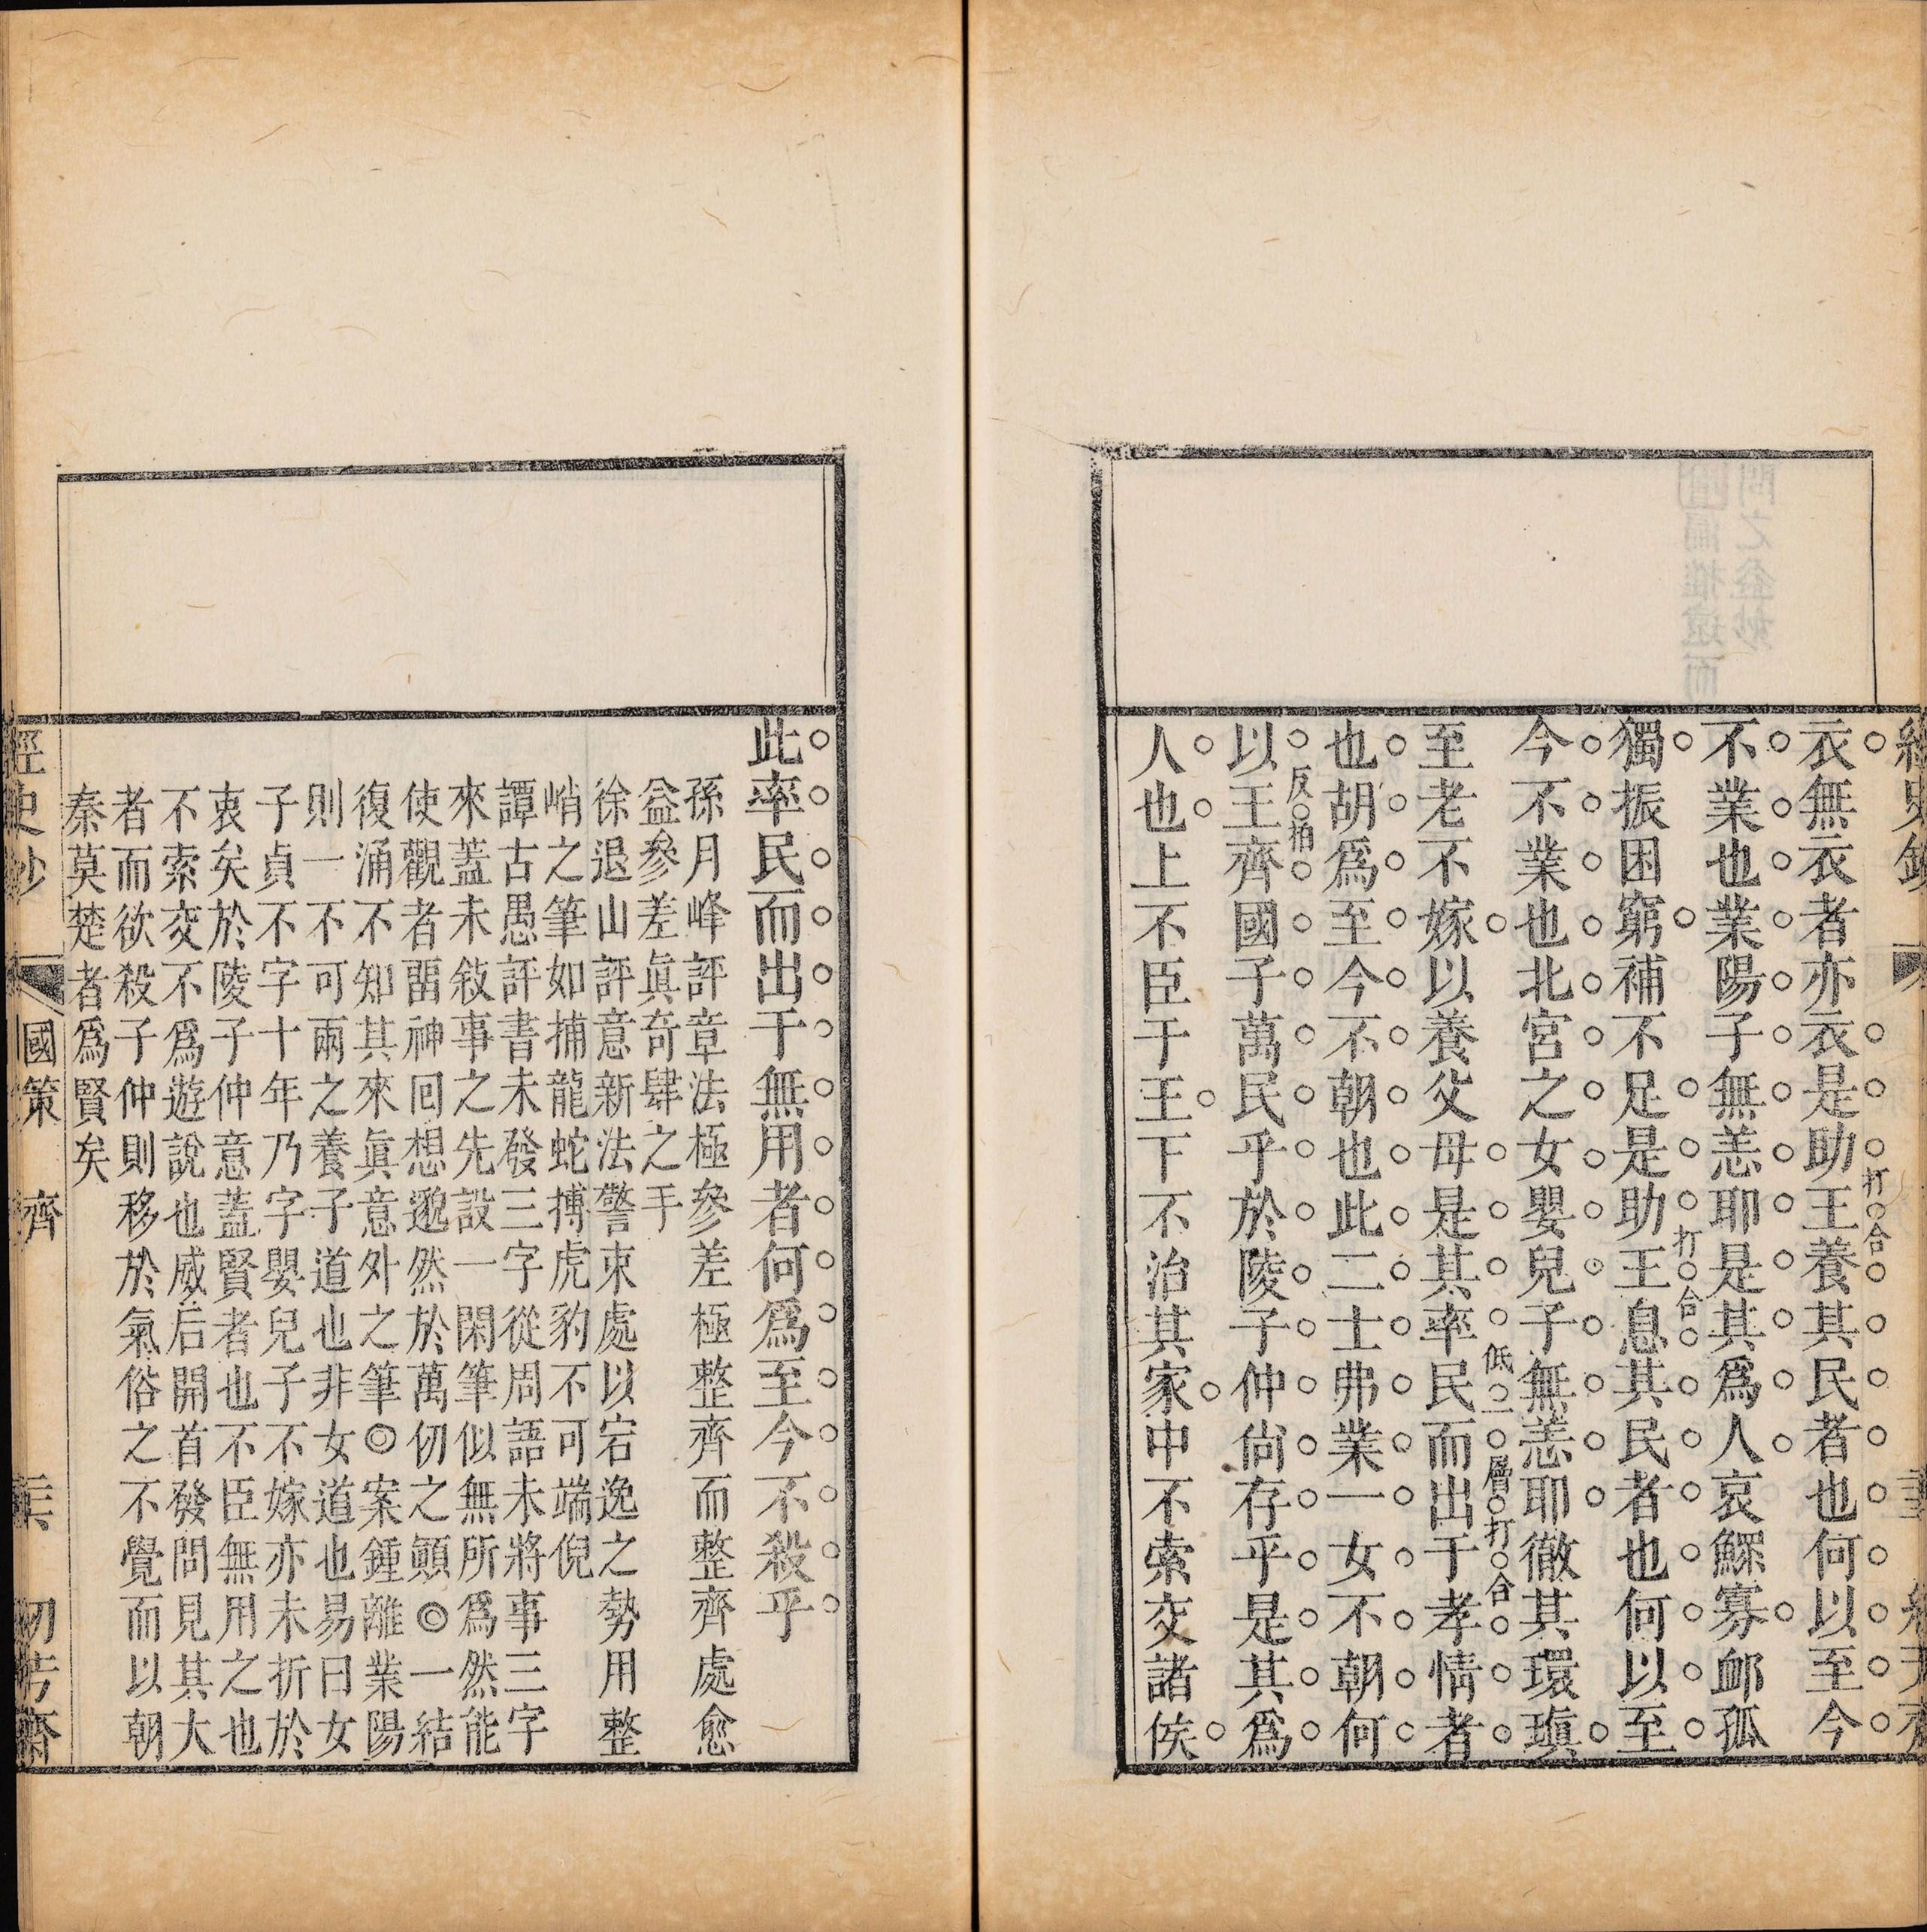 衣無衣者亦衣是助王養其民者也何以至今
打合
不業也業陽子無恙耶是其爲人哀鰥寡卹孤
獨振困窮補不足是助王息其民者也何以至
打合
今不業也北宮之女嬰兒子無恙耶徹其環瑱
至老不嫁以養父母是其率民而出于孝情者
低一層打合
也胡爲至今不朝也此二士弗業一女不朝何
以王齊國子萬民乎於陵子仲尙存乎是其爲
反拍
人也上不臣于王下不治其家中不索交諸侯
此率民而出于無用者何爲至今不殺乎
孫月峰評章法極參差極整齊而整齊處愈
益參差眞奇肆之手
徐退山評意新法警束處以宕逸之勢用整
峭之筆如捕龍蛇搏虎豹不可端倪
譚古愚評書未發三字從周語未將事三字
來蓋未敍事之先設一閑筆似無所爲然能
使觀者畱神囘想邈然於萬仞之顚◎一結
復涌不知其來眞意外之筆◎案鍾離業陽
則一不可兩之養子道也非女道也易曰女
子貞不字十年乃字嬰兒子不嫁亦未折於
衷矣於陵子仲意蓋賢者也不臣無用之也
不索交不爲遊說也威后開首發問見其大
者而欲殺子仲則移於氣俗之不覺而以朝
秦莫楚者爲賢矣
經史鈔 國策 齊 初考齋